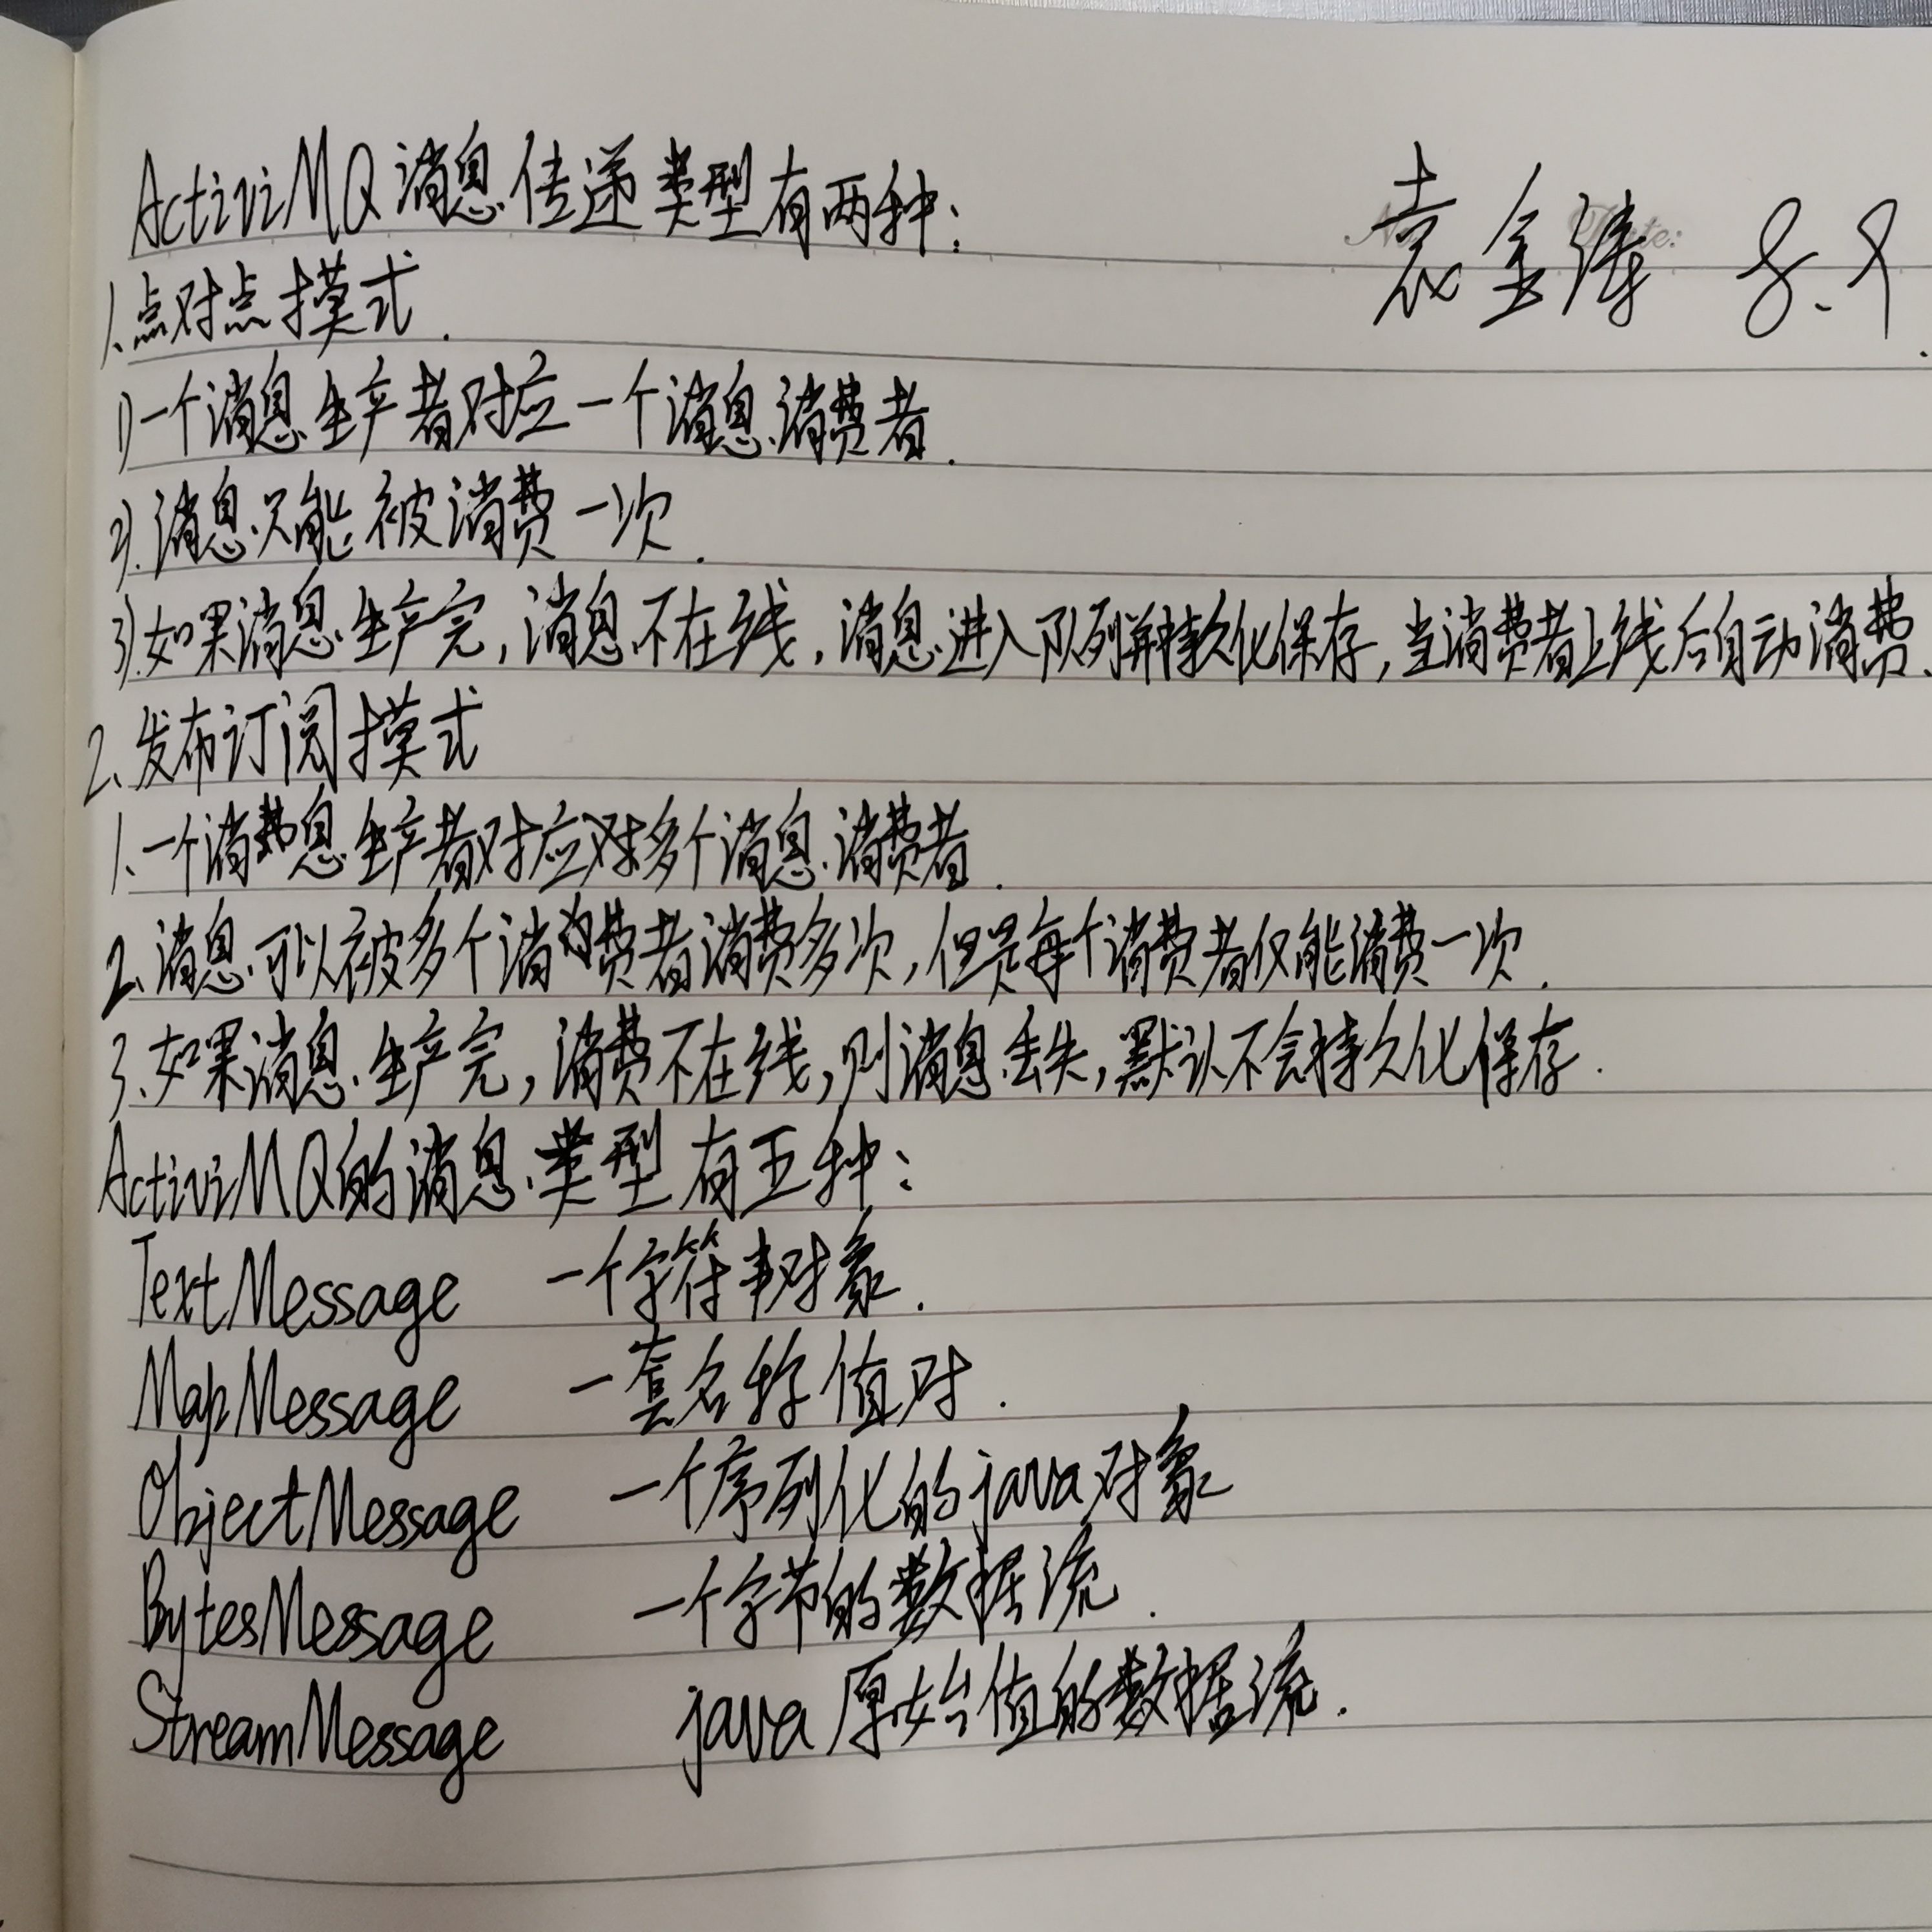 ActiviMQ消息传递类型有两种：
袁金涛 8.9
1.点对点模式.
1)一个消息生产者对应一个消息消费者.
2).消息只能被消费一次.
3).如果消息生产完,消息不在线,消息进入队列并持久化保存,当消费者上线后自动消费.
2.发布订阅模式
1.一个消息生产者对应多个消息消费者.
2.消息可以被多个消费者消费多次,但是每个消费者仅能消费一次.
3.如果消息生产完,消费不在线,则消息丢失,默认不会持久化保存.
ActiviMQ的消息类型有五种：
TextMessage 一个字符串对象.
MapMessage 一套名称值对.
ObjectMessage 一个序列化的java对象
BytesMessage 一个字节的数据流.
StreamMessage java原始值的数据流.